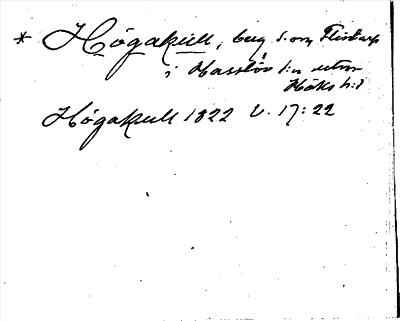 * Högakull, berg S. om Flintarp
i Hasslöv s:n utm
Höks h:d
Högakull 1822 V. 17:22